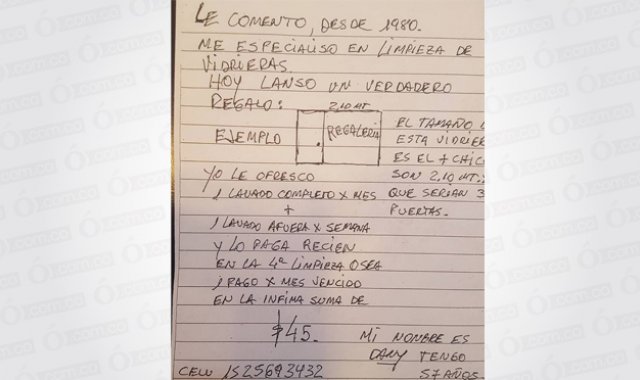 LE COMENTO, DESDE 1980.
ME ESPECIALISO EN LIMPIEZA DE
VIDRIERAS.
HOY LANSO UN VERDADERO
REGALO:
2,10 MT
EJEMPLO
REGALERIA
EL TAMAÑO
ESTA
ES EL + CHIC
SON 2,10 MT.
QUE SERIAN 3
PUERTAS.
YO LE OFRESCO
1 LAVADO COMPLETO X MES
+
1 LAVADO AFUERA X SEMANA
Y LO PAGA RECIEN
EN LA 4ª LIMPIEZA OSEA
1 PAGO X MES VENCIDO
EN LA INFIMA SUMA DE
$45.
MI NOMBRE ES
DANY TENGO
57 AÑOS.
CELU 1525693432